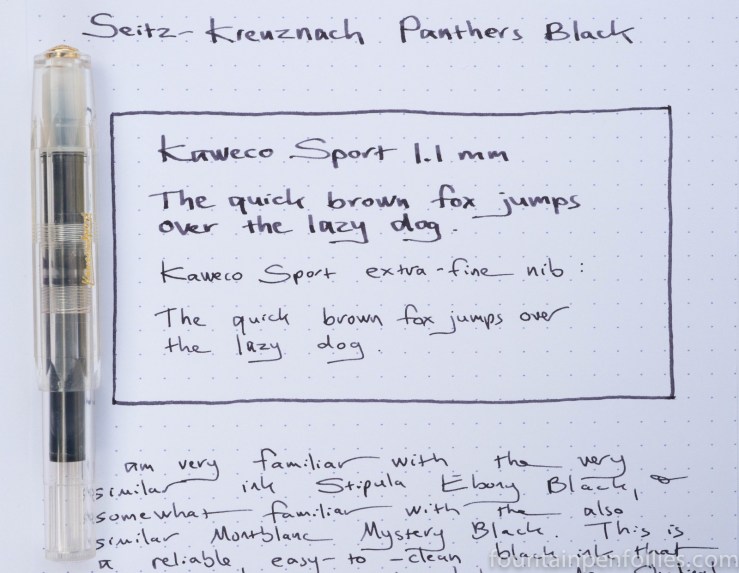 Seitz-Kreuznach Panthers Black
Kaweco Sport 1.1 mm
The quick brown fox jumps
over the lazy dog.
Kaweco Sport extra-fine nib:
The quick brown fox jumps over
the lazy dog.
am very familiar with the very
similar ink Stipula Ebony Black, &
somewhat familiar with the also
similar Montblanc Mystery Black. This is
a reliable easy-to-clean black ink that
fountainpenfollies.com